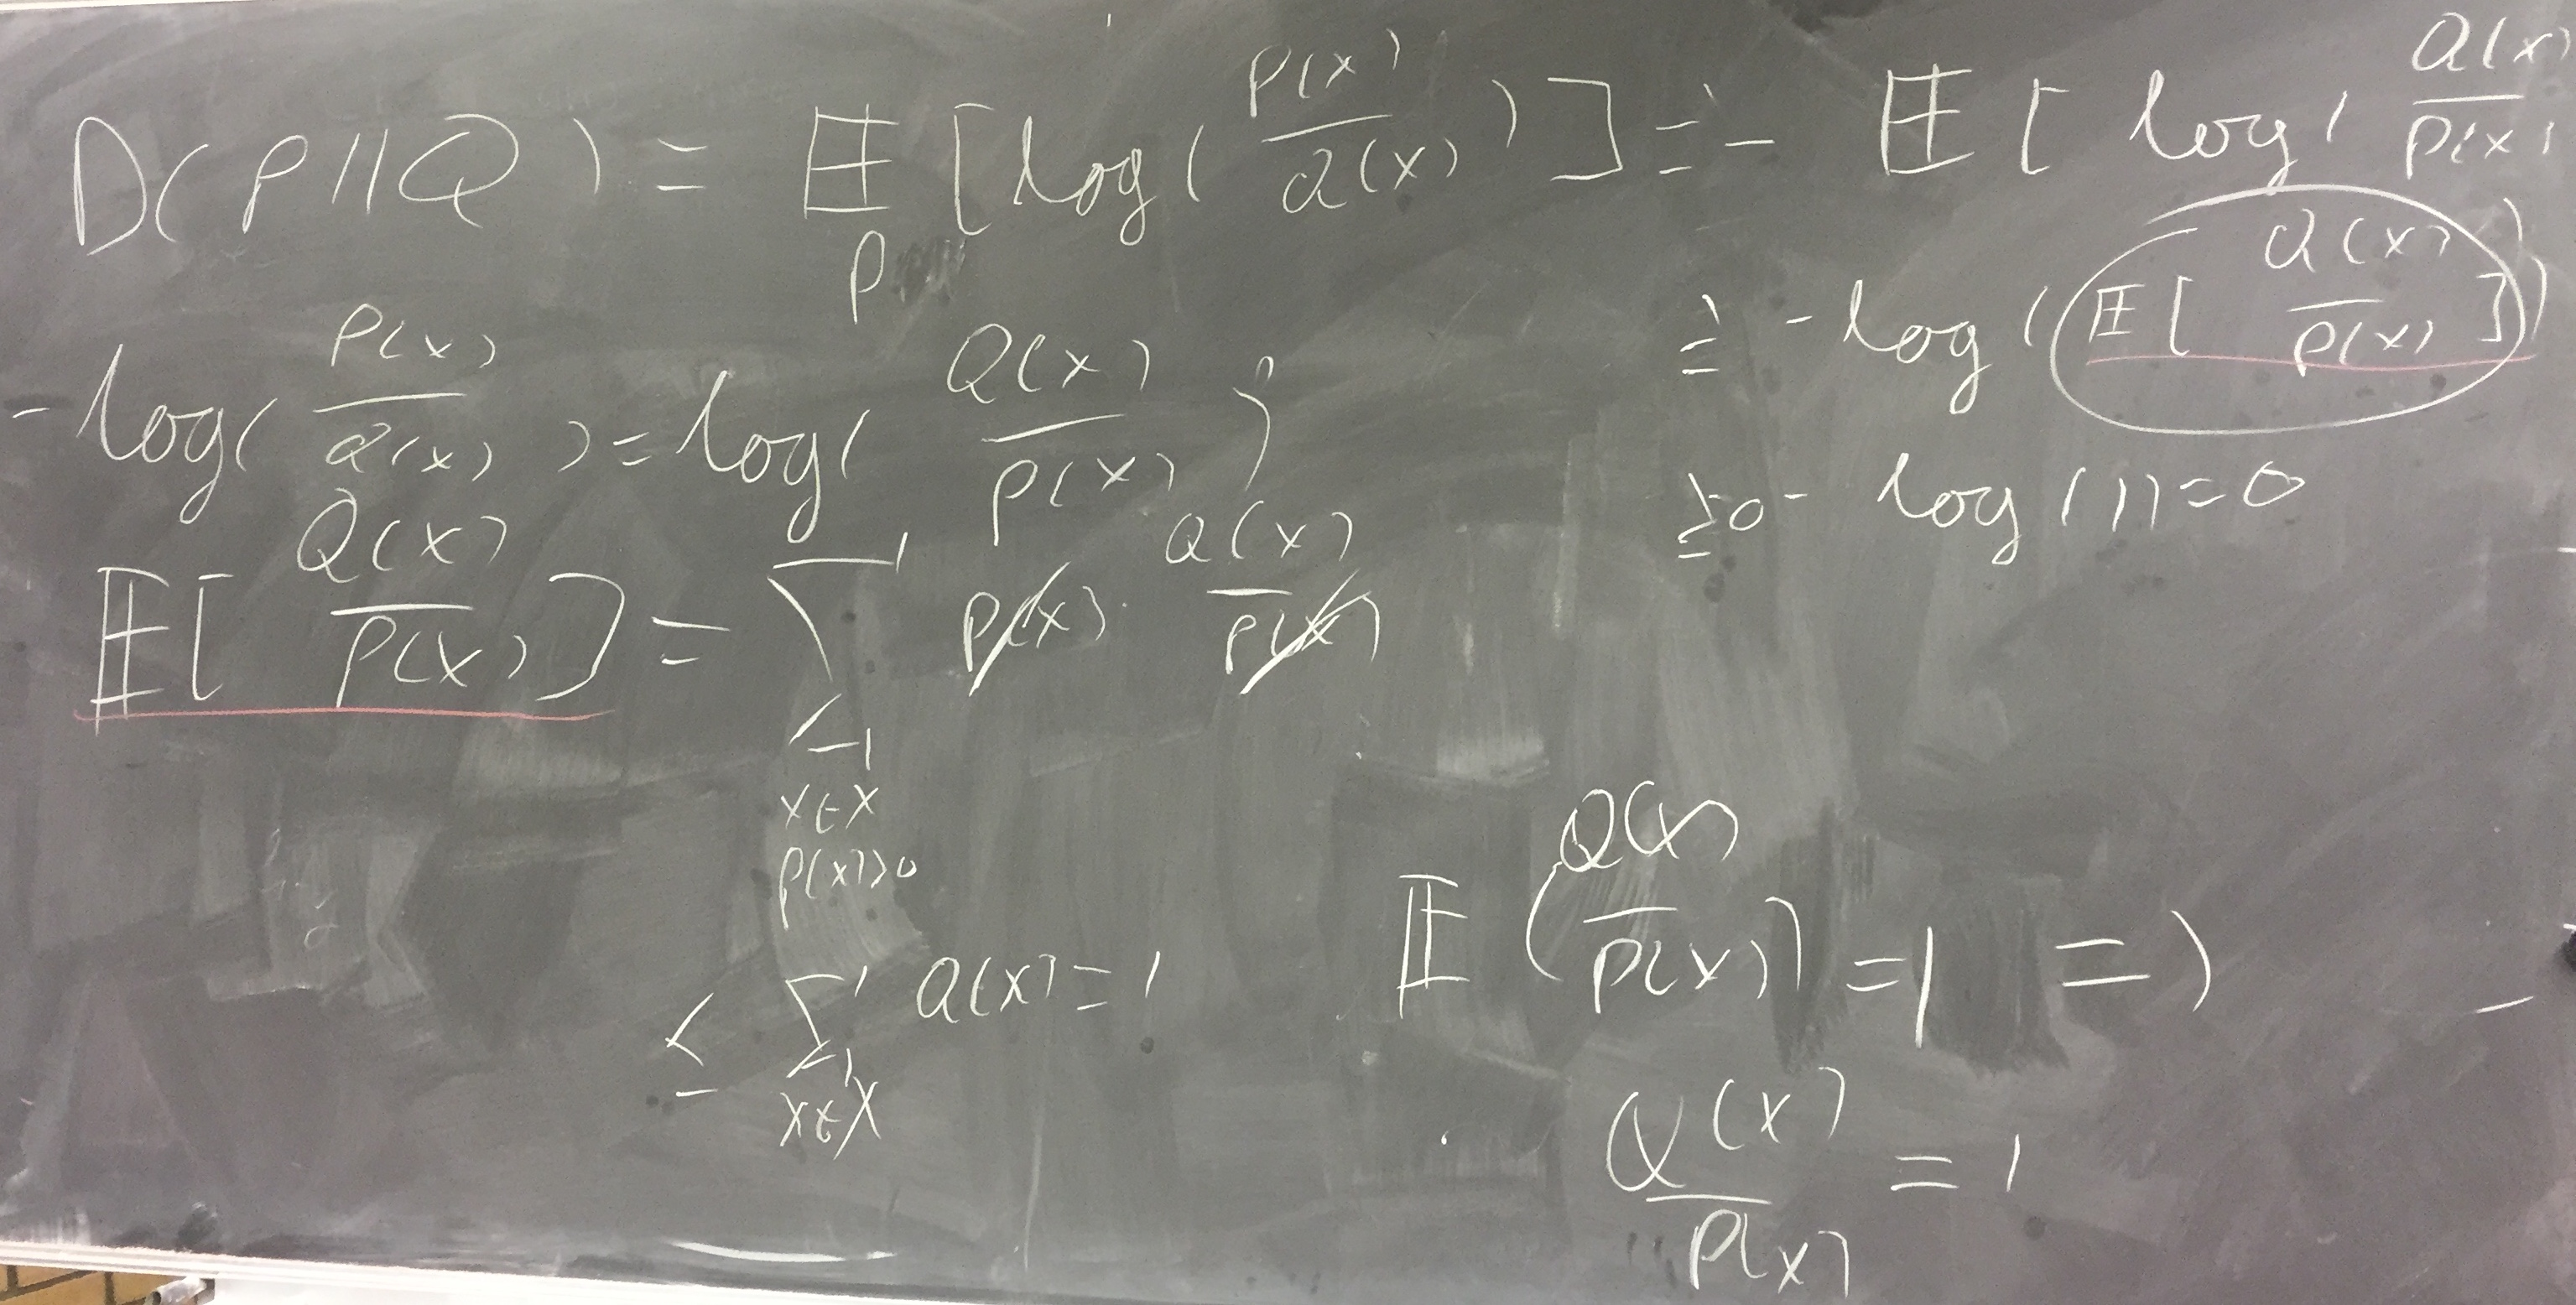 D(P||Q) = E_P [log( P(x) / Q(x) )] = - E [ log( Q(x) / P(x)
≥ - log( E[ Q(x) / P(x) ])
≥ - log(1) = 0
- log( P(x) / Q(x) ) = log( Q(x) / P(x) )
E[ Q(x) / P(x) ] = Σ P(x) · Q(x) / P(x)
x∈X
P(x)>0
≤ Σ Q(x) = 1
x∈X
E( Q(x) / P(x) ) = 1 =>
Q(x) / P(x) = 1